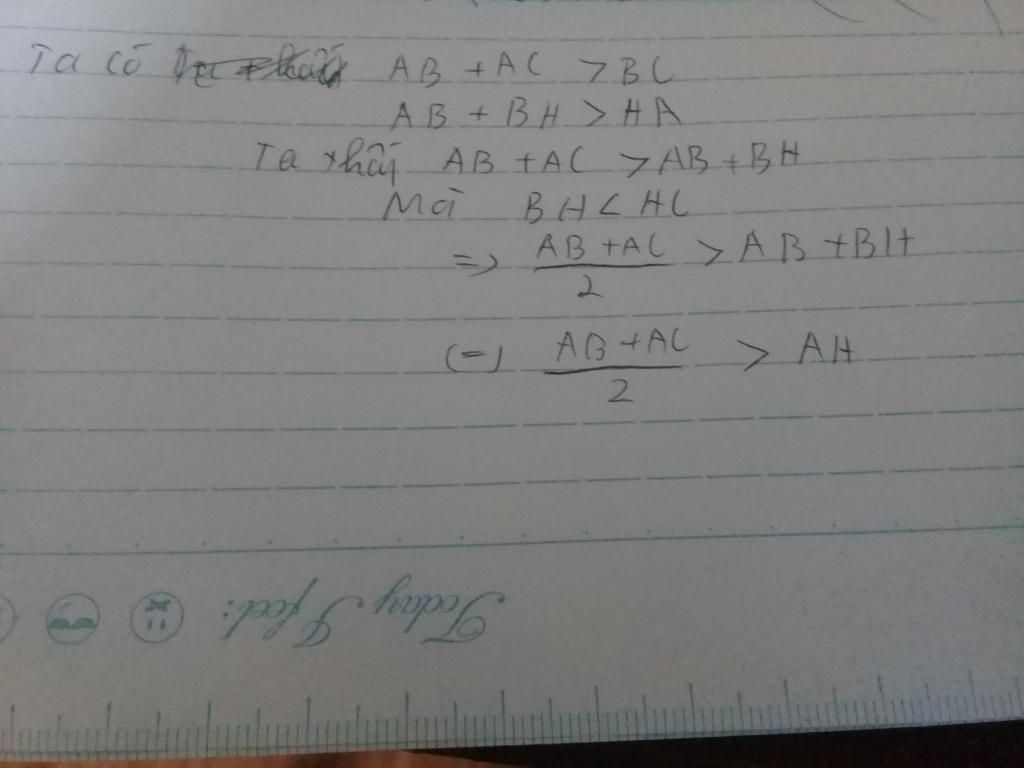 Ta có AB + AC > BC
AB + BH > HA
Ta thấy AB + AC > AB + BH
Mà BH < HC
=> AB + AC / 2 > AB + BH
(=) AB + AC / 2 > AH
Today I feel: